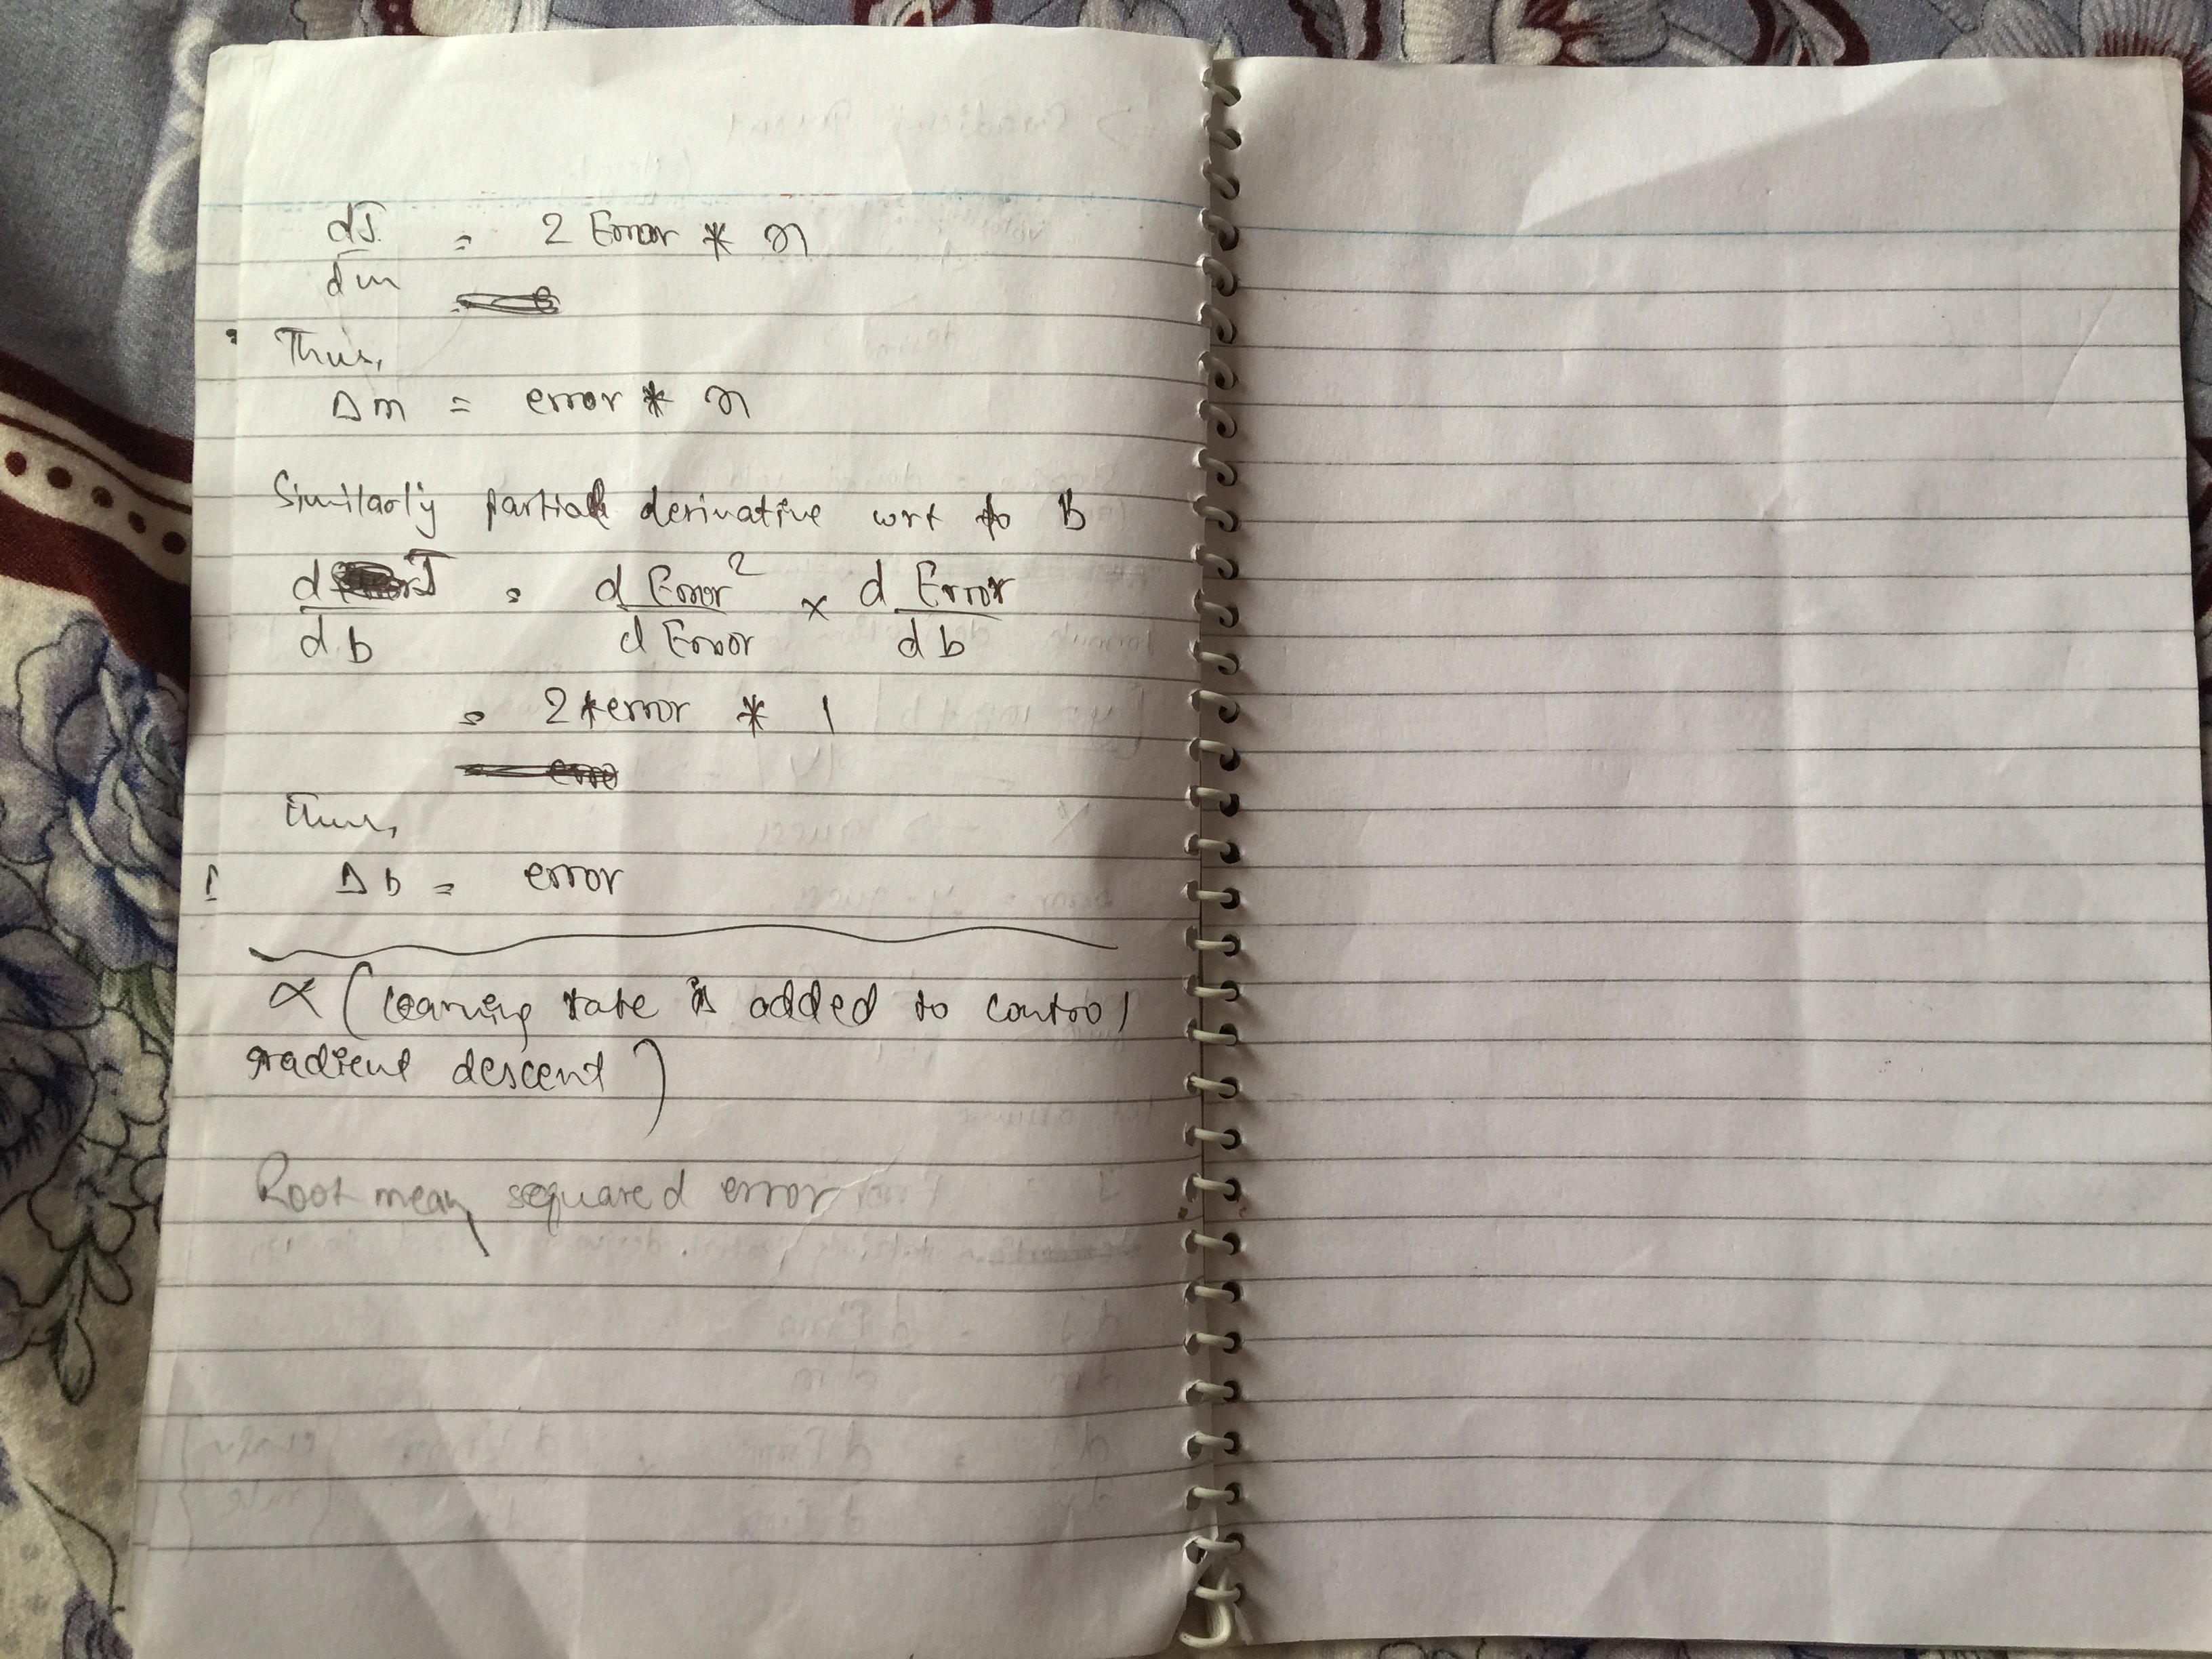 dJ
dm = 2 Error * x
Thus,
Δm = error * x
Similarly partial derivative wrt to B
dJ/db = d Error²/d Error × d Error/db
= 2*error * 1
Thus,
Δb = error
α (learning rate is added to control
gradient descent)
Root mean sequared error